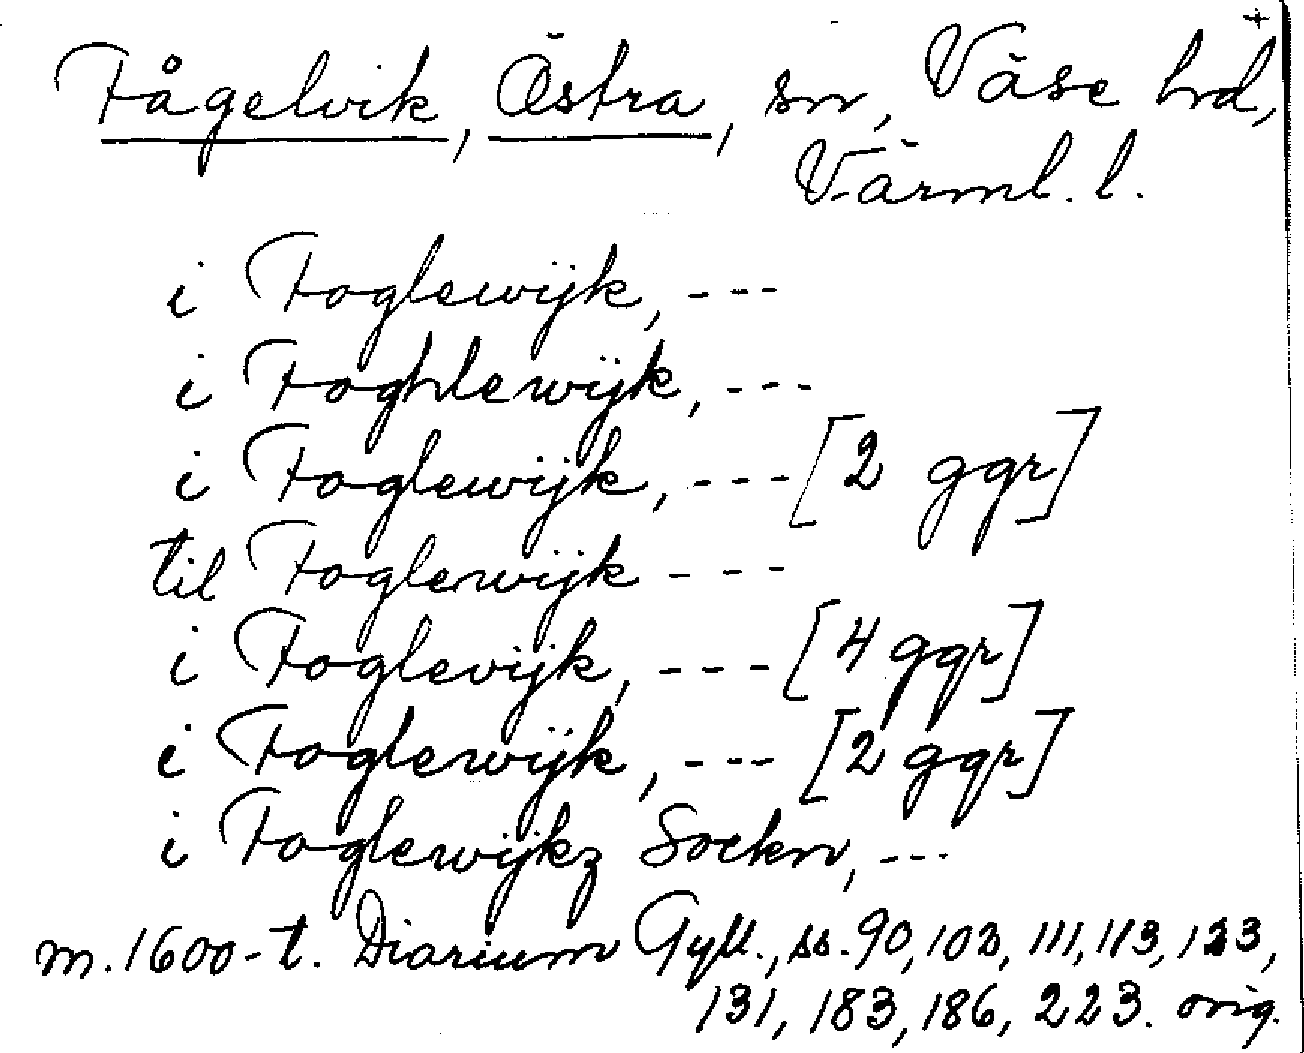 +
Fågelvik, Östra, sn, Väse hd,
Värml. l.
i Foglewijk, ---
i Foghlewijk, ---
i Foglewijk, --- [2 ggr]
til Foglewijk ---
i Foglevijk, --- [4 ggr]
i Foglewÿk, --- [2 ggr]
i Foglewijkz Sockn, ---
m. 1600-t. Diarium Gyll., ss. 90, 102, 111, 113, 123,
131, 183, 186, 223. orig.